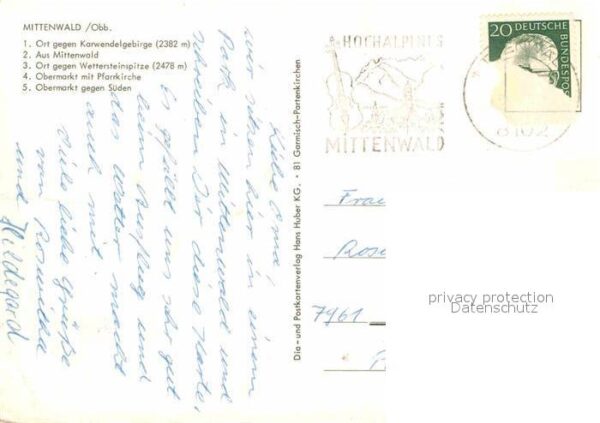 MITTENWALD /Obb.
1. Ort gegen Karwendelgebirge (2382 m)
2. Aus Mittenwald
3. Ort gegen Wettersteinspitze (2478 m)
4. Obermarkt mit Pfarrkirche
5. Obermarkt gegen Süden
Liebe Oma!
wir sitzen hier in einem
Park in Mittenwald und
schreiben Dir diese Karte.
Es gefällt uns sehr gut
beim Ausflug und
das Wetter macht
auch mit.
Viele liebe Grüße
von Roswitha
und Hildegard
Dia- und Postkartenverlag Hans Huber KG. • 81 Garmisch-Partenkirchen
HOCHALPINES
MITTENWALD
20 DEUTSCHE
BUNDESPOST
8102
Frau
Rose
7961
privacy protection
Datenschutz